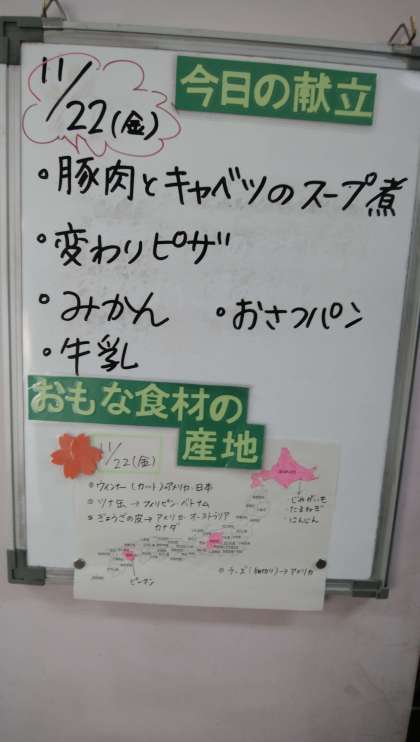 11/22(金)
今日の献立
・豚肉とキャベツのスープ煮
・変わりピザ
・みかん ・おさつパン
・牛乳
おもな食材の
産地
11/22(金)
ウィンナー(カット)→アメリカ・日本
ツナ缶→フィリピン・ベトナム
ぎょうざの皮→アメリカ・オーストラリア
カナダ
じゃがいも
たまねぎ
にんじん
ピーマン
チーズ(細切り)→アメリカ